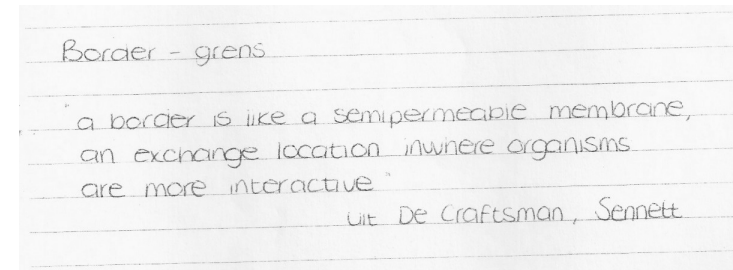 Border - grens
"a border is like a semipermeable membrane,
an exchange location inwhere organisms
are more interactive"
uit De Craftsman, Sennett